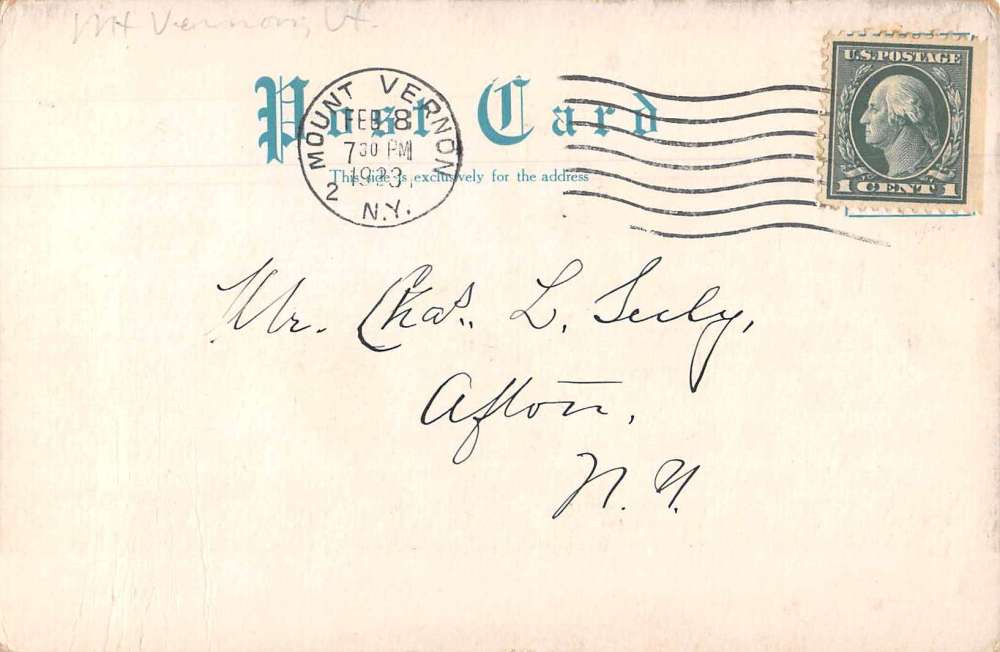 Mt Vernon, Vt.
Post Card
This side is exclusively for the address
MOUNT VERNON
FEB 8
7 30 PM
1923
2
N.Y.
U.S. POSTAGE
1 CENT 1
Mr. Chas. L. Seely,
Afton,
N. Y.